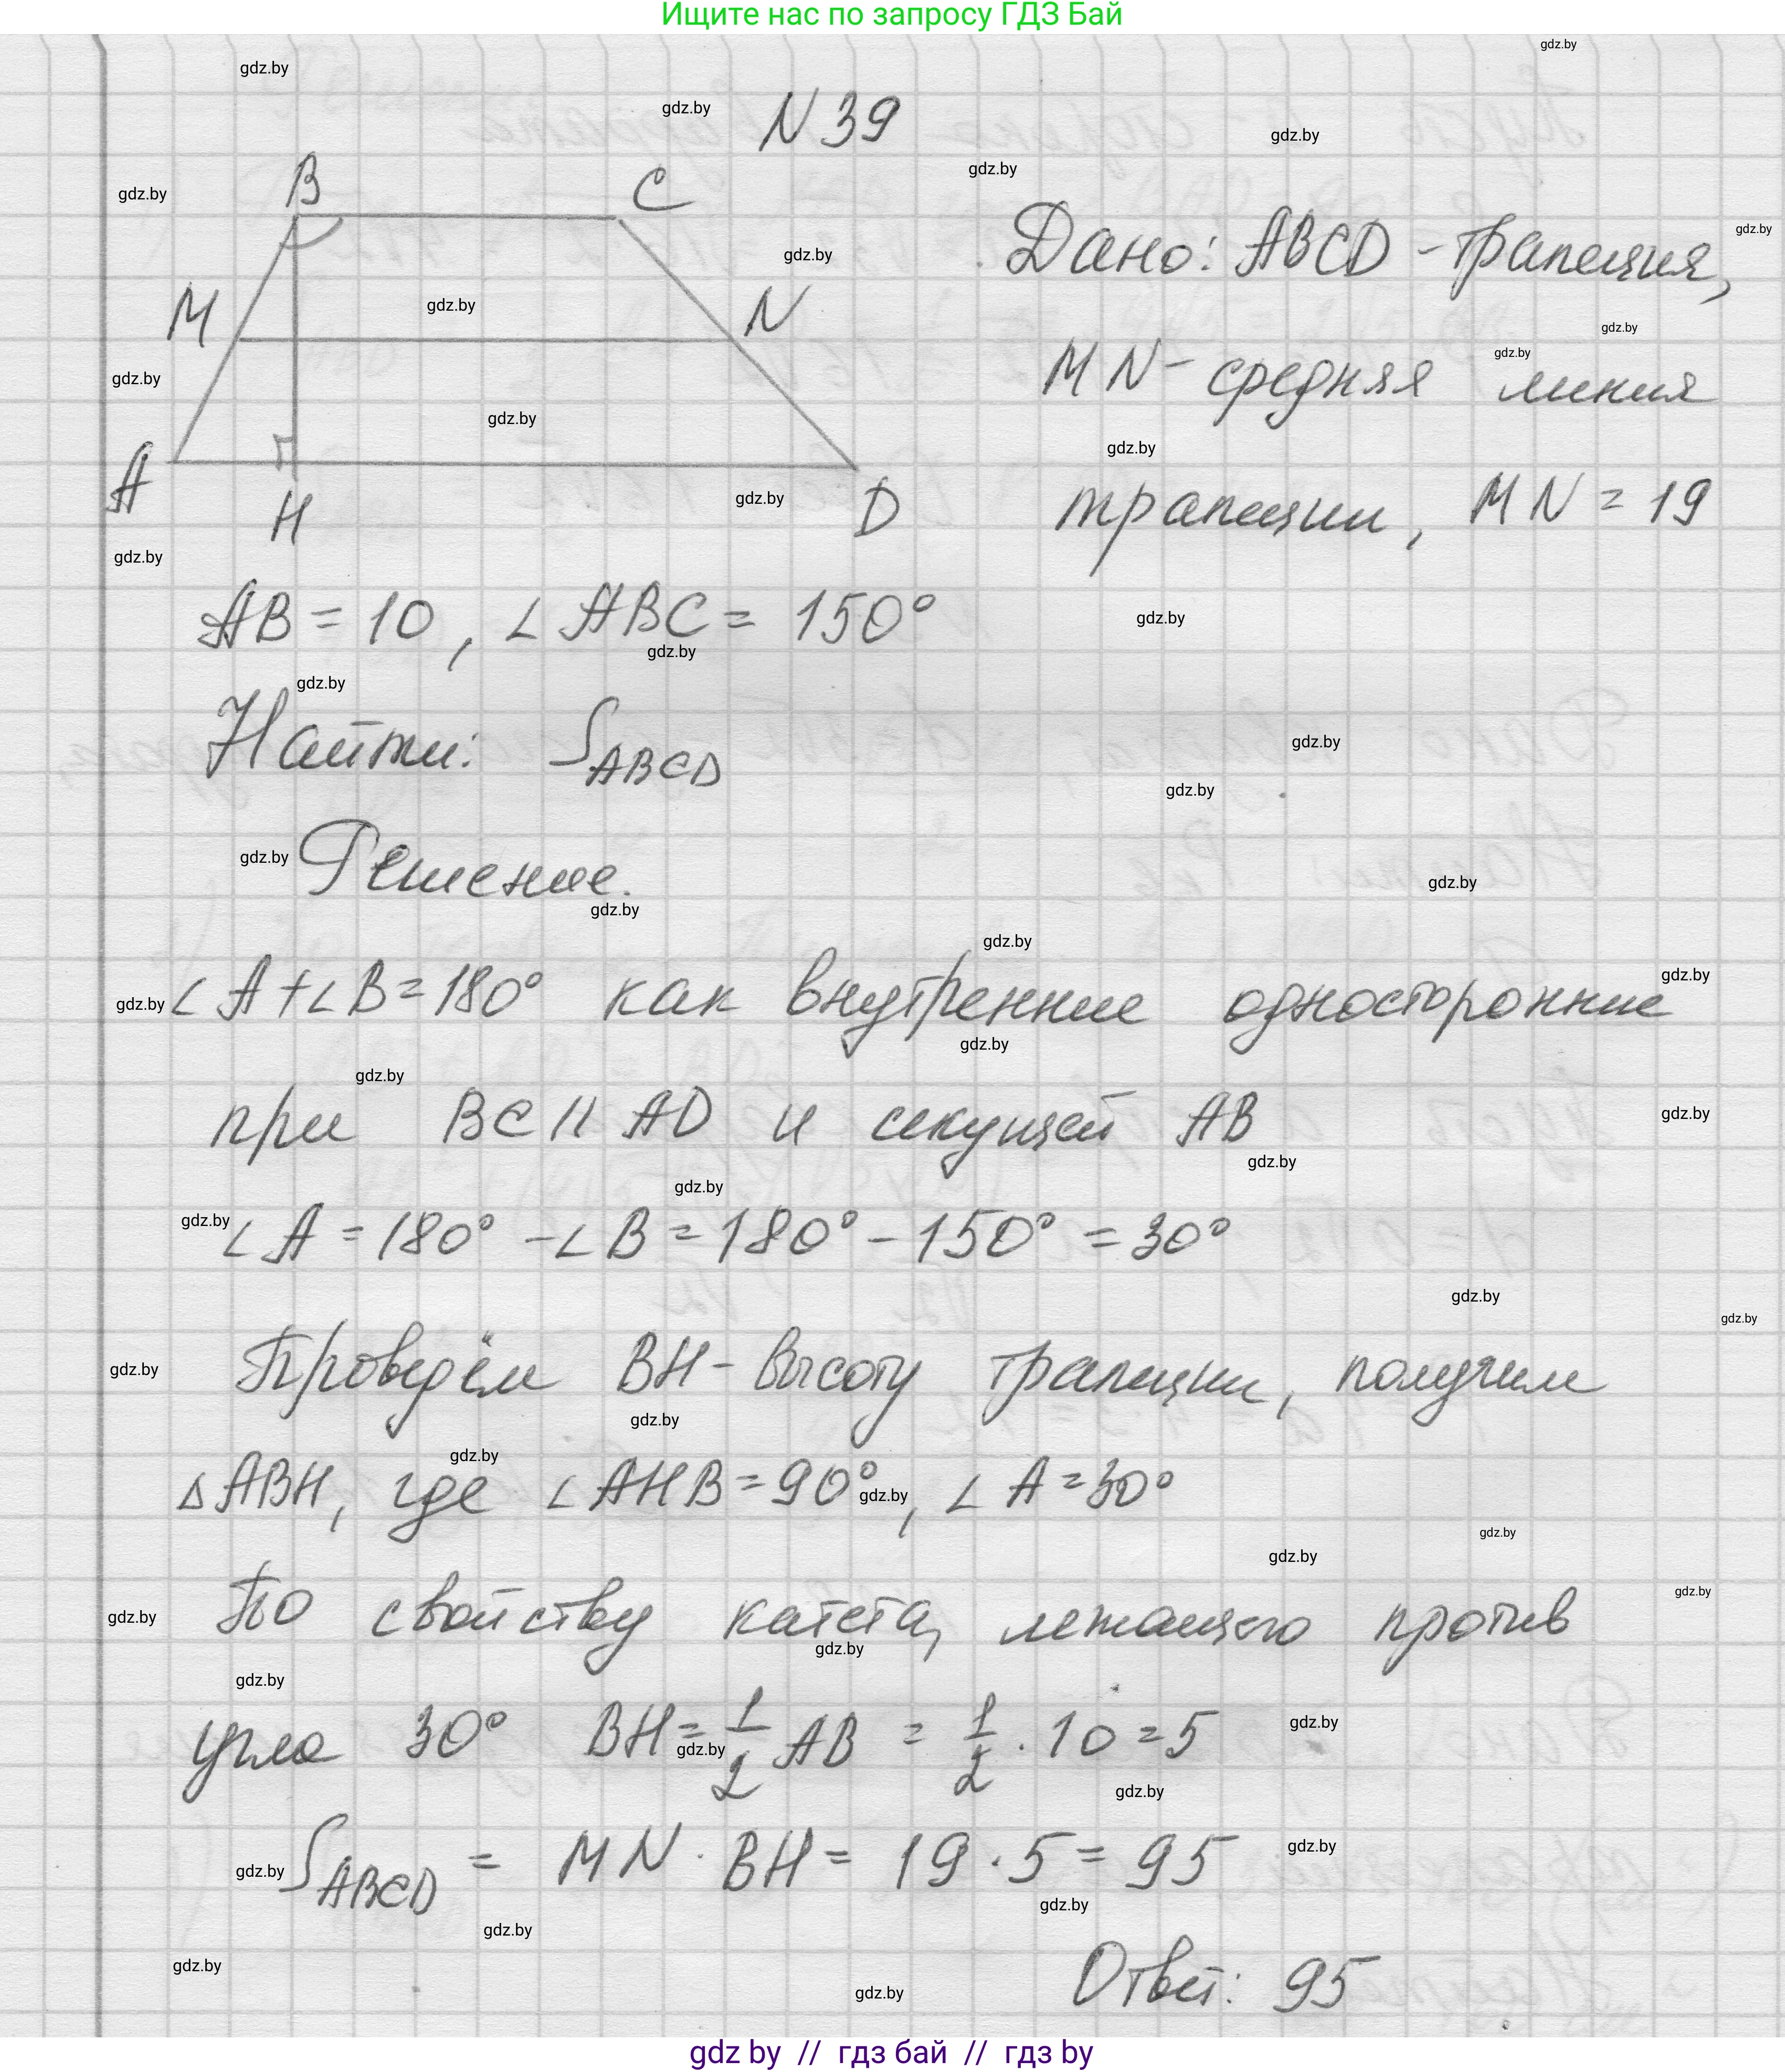 Ищите нас по запросу ГДЗ Бай
N 39
B
C
M
N
A
H
D
Дано: ABCD - трапеция,
MN - средняя линия
трапеции, MN = 19
AB = 10, ∠ ABC = 150°
Найти: S ABCD
Решение.
∠ A + ∠ B = 180° как внутренние односторонние
при BC || AD и секущей AB
∠ A = 180° - ∠ B = 180° - 150° = 30°
Проведём BH - высоту трапеции, получим
△ ABH, где ∠ AHB = 90°, ∠ A = 30°
По свойству катета, лежащего против
угла 30° BH = 1/2 AB = 1/2 · 10 = 5
S ABCD = MN · BH = 19 · 5 = 95
Ответ: 95
gdz.by
gdz by // гдз бай // гдз by